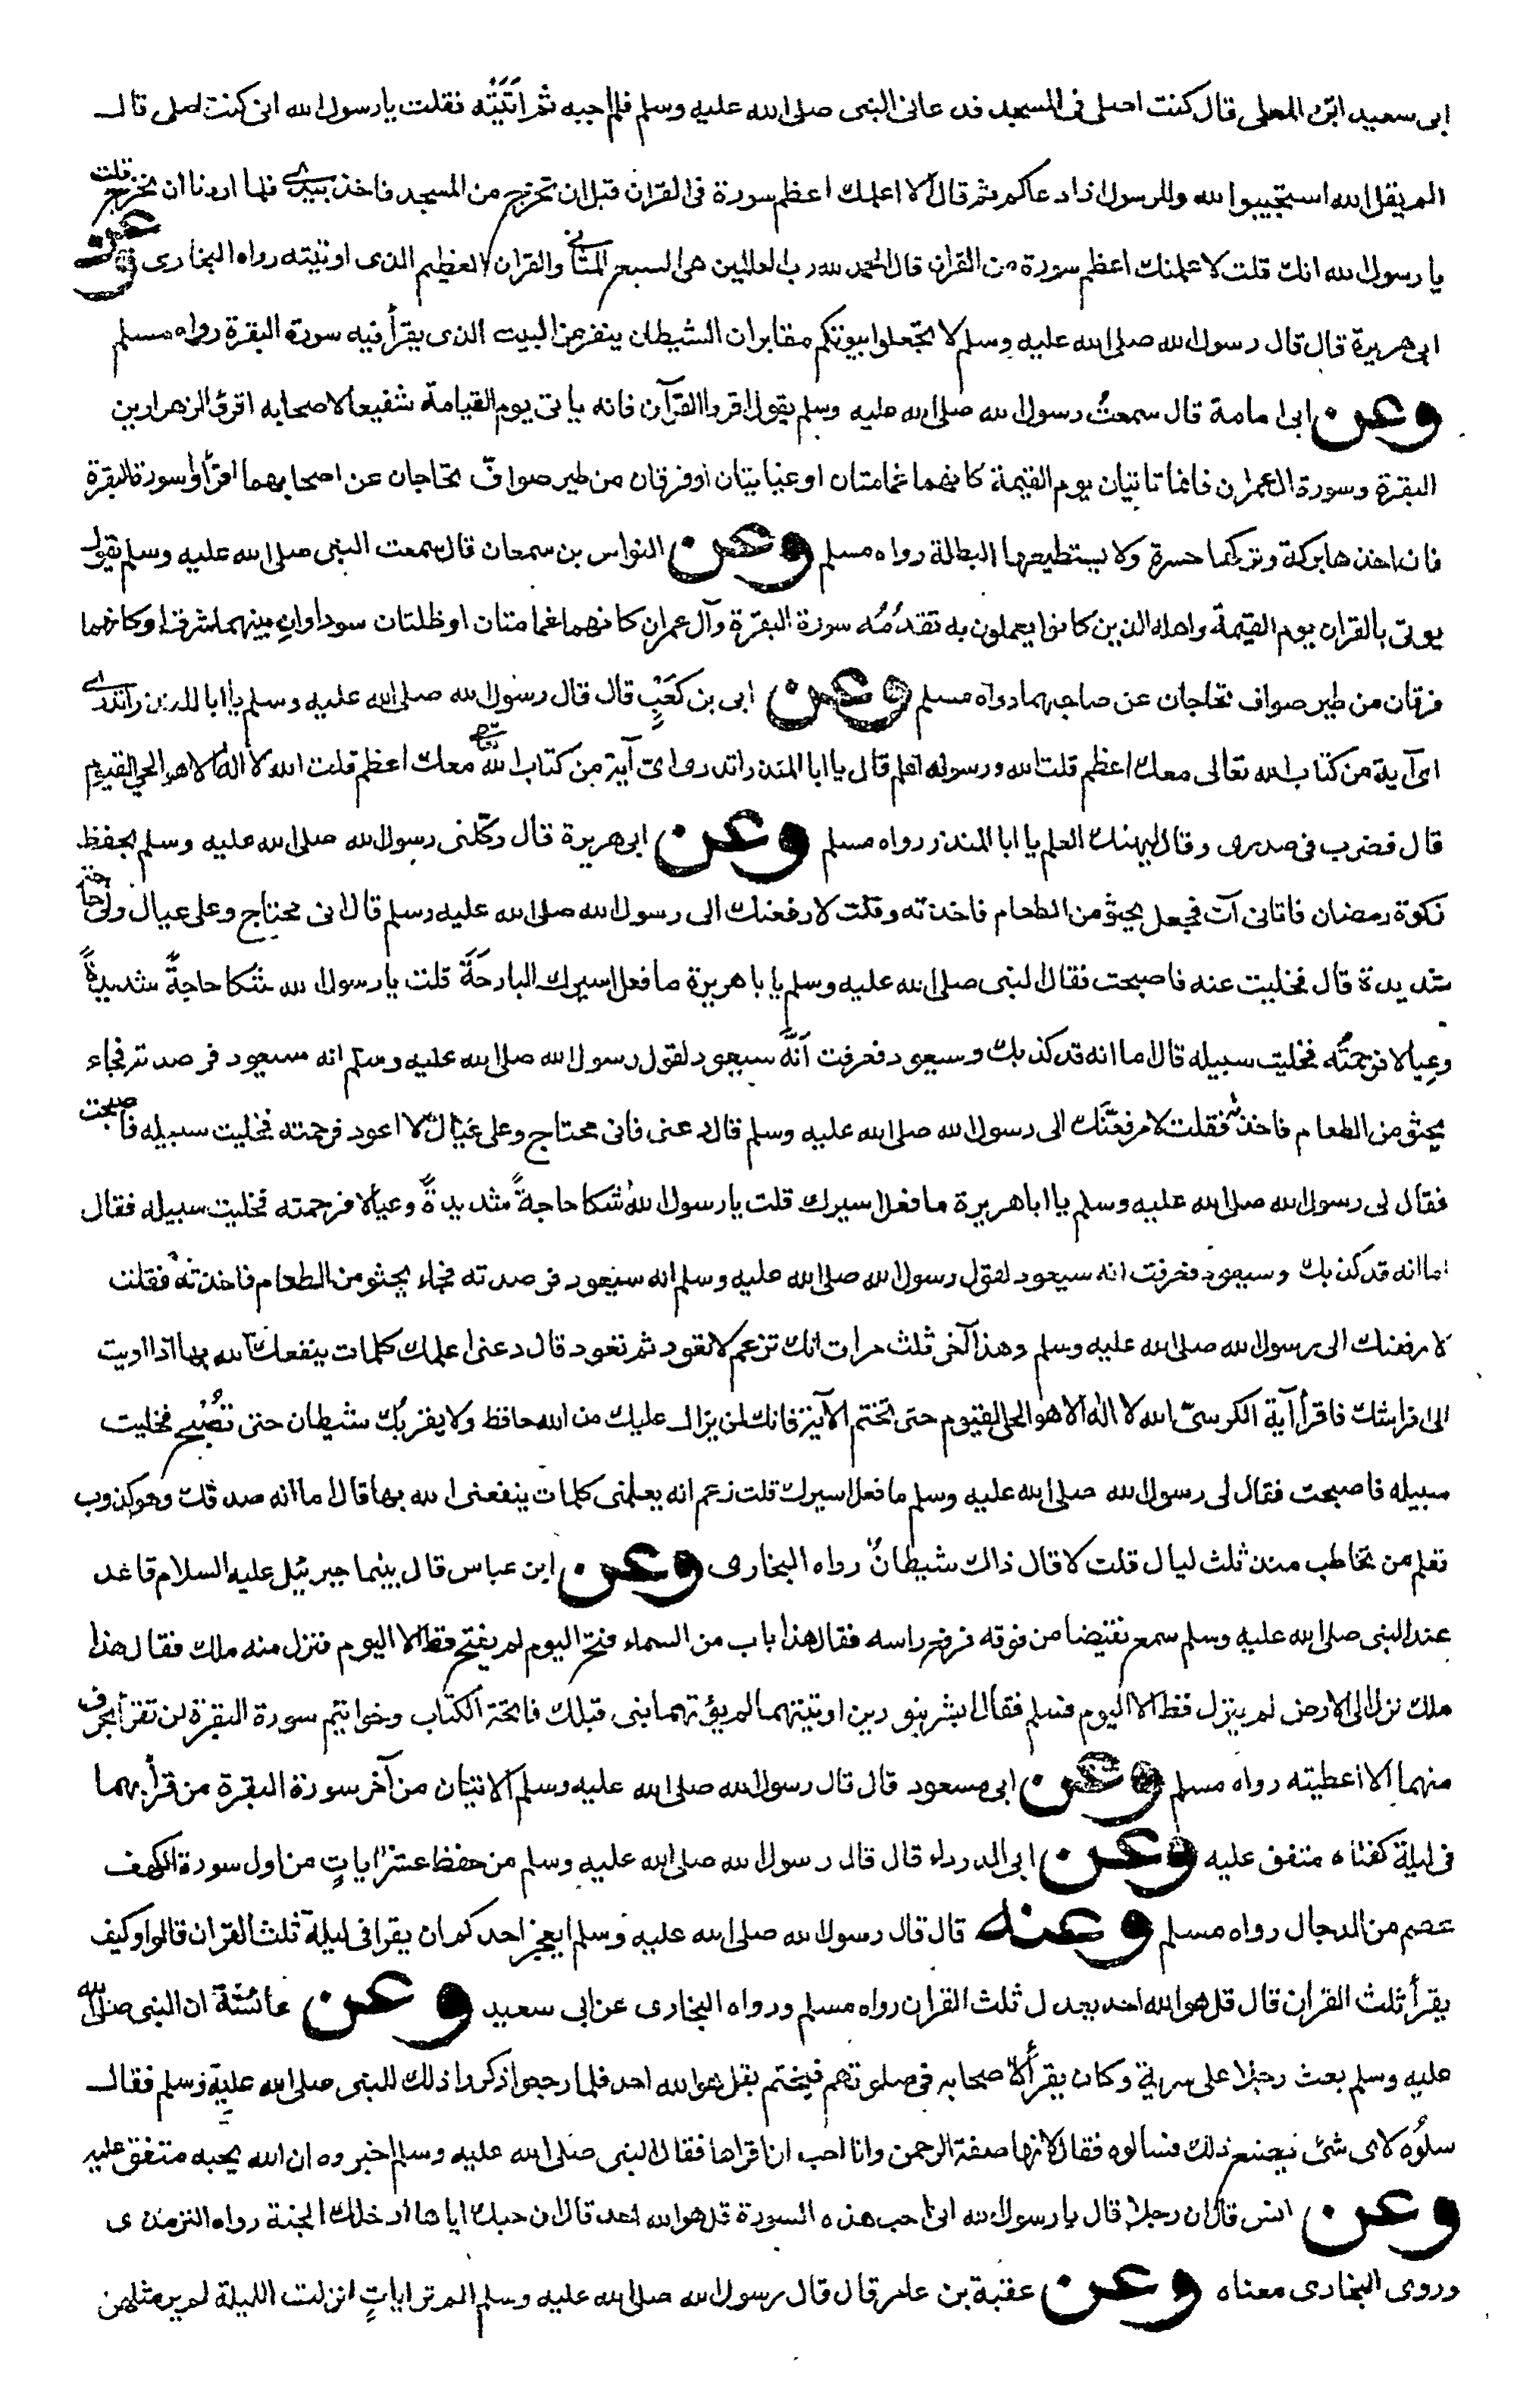 ابى سعيد ابن المعلى قال كنت اصلى فى المسجد فدعانى النبى صلى الله عليه وسلم فلم اجبه ثم اتَيْتُه فقلت يا رسول الله انى كنت اصلى قال
الم يقل الله استجيبوا لله وللرسول اذا دعاكم ثم قال الا اعلمك اعظم سورة فى القران قبل ان تخرج من المسجد فاخذ بيدى فلما اردنا ان نخرج قلت
يا رسول الله انك قلت لاعلمنك اعظم سورة من القران قال الحمد لله رب العالمين هى السبع المثانى والقران العظيم الذى اوتيته رواه البخارى وعن
ابى هريرة قال قال رسول الله صلى الله عليه وسلم لا تجعلوا بيوتكم مقابر ان الشيطان ينفر من البيت الذى يقرأ فيه سورة البقرة رواه مسلم
وعن ابى امامة قال سمعتُ رسول الله صلى الله عليه وسلم يقول اقروا القرآن فانه ياتى يوم القيامة شفيعا لاصحابه اقرؤ الزهراوين
البقرة وسورة ال عمران فانما تاتيان يوم القيمة كانهما غمامتان او غيايتان او فرقان من طير صوافّ تحاجان عن اصحابهما اقرأوا سورة البقرة
فان اخذها بركة وتركها حسرة ولا يستطيعها البطالة رواه مسلم وعن النواس بن سمعان قال سمعت النبى صلى الله عليه وسلم يقول
يوتى بالقران يوم القيمة واهله الذين كانوا يعملون به تقدُمُه سورة البقرة وآل عمران كانهما غمامتان او ظلتان سوداوانِ بينهما شرق او كانهما
فرقان من طير صواف تحاجان عن صاحبهما رواه مسلم وعن ابى بن كعَبٍ قال قال رسول الله صلى الله عليه وسلم يا ابا المنذر اتدرى
اى آية من كتاب الله تعالى معك اعظم قلت الله ورسوله اعلم قال يا ابا المنذر اتدرى اىّ آية من كتاب الله تعالى معك اعظم قلت الله لا اله الا هو الحى القيوم
قال فضرب فى صدرى وقال ليهنك العلم يا ابا المنذر رواه مسلم وعن ابى هريرة قال وكّلنى رسول الله صلى الله عليه وسلم بحفظ
زكوة رمضان فاتانى آت فجعل يحثو من الطعام فاخذته وقلت لارفعنك الى رسول الله صلى الله عليه وسلم قال انى محتاج وعلى عيال ولى حاجة
شديدة قال فخليت عنه فاصبحت فقال النبى صلى الله عليه وسلم يا با هريرة ما فعل اسيرك البارحَةَ قلت يا رسول الله شكا حاجةً شديدةً
وعِيالا فرحمتُه فخليت سبيله قال اما انه قد كذبك وسيعود فعرفت اَنَّه سيعود لقول رسول الله صلى الله عليه وسلم انه سيعود فرصدته فجاء
يحثو من الطعام فاخذته فقلت لارفعنَّك الى رسول الله صلى الله عليه وسلم قال دعنى فانى محتاج وعلى عيال لا اعود فرحمته فخليت سبيله فاصبحت
فقال لى رسول الله صلى الله عليه وسلم يا ابا هريرة ما فعل اسيرك قلت يا رسول الله شكا حاجةً شديدةً وعيالا فرحمته فخليت سبيله فقال
اما انه قد كذبك وسيعود فعرفت انه سيعود لقول رسول الله صلى الله عليه وسلم انه سيعود فرصدته فجاء يحثو من الطعام فاخذته فقلت
لارفعنك الى رسول الله صلى الله عليه وسلم وهذا آخر ثلث مرات انك تزعم لا تعود ثم تعود قال دعنى اعلمك كلمات ينفعك الله بها اذا اويت
الى فراشك فاقرأ آية الكرسىّ الله لا اله الا هو الحى القيوم حتى تختم الآية فانك لن يزال عليك من الله حافظ ولا يقربك شيطان حتى تصُبْح فخليت
سبيله فاصبحت فقال لى رسول الله صلى الله عليه وسلم ما فعل اسيرك قلت زعم انه يعلمنى كلمات ينفعنى الله بها قال اما انه صدقك وهو كذوب
تعلم من تخاطب منذ ثلث ليال قلت لا قال ذاك شيطانٌ رواه البخارى وعن ابن عباس قال بينما جبرئيل عليه السلام قاعد
عند النبى صلى الله عليه وسلم سمع نقيضا من فوقه فرفع راسه فقال هذا باب من السماء فتح اليوم لم يفتح قط الا اليوم فنزل منه ملك فقال هذا
ملك نزل الى الارض لم ينزل قط الا اليوم فسلم فقال ابشر بنورين اوتيتهما لم يؤتهما نبى قبلك فاتحة الكتاب وخواتيم سورة البقرة لن تقرأ بحرف
منهما الا اعطيته رواه مسلم وعن ابى مسعود قال قال رسول الله صلى الله عليه وسلم الايتان من آخر سورة البقرة من قرأ بهما
فى ليلة كفتاه متفق عليه وعن ابى الدرداء قال قال رسول الله صلى الله عليه وسلم من حفظ عشر اياتٍ من اول سورة الكهف
عصم من الدجال رواه مسلم وعنه قال قال رسول الله صلى الله عليه وسلم ايعجز احدكم ان يقرا فى ليلة ثلث القران قالوا وكيف
يقرأ ثلث القران قال قل هو الله احد يعدل ثلث القران رواه مسلم ورواه البخارى عن ابى سعيد وعن عائشة ان النبى صلى الله
عليه وسلم بعث رجلا على سرية وكان يقرأ لاصحابه فى صلوتهم فيختم بقل هو الله احد فلما رجعوا ذكروا ذلك للنبى صلى الله عليه وسلم فقال
سلُوه لاى شئ يصنع ذلك فسالوه فقال لانها صفة الرحمن وانا احب ان اقراها فقال النبى صلى الله عليه وسلم اخبروه ان الله يحبه متفق عليه
وعن انس قال ان رجلا قال يا رسول الله انى احب هذه السورة قل هو الله احد قال ان حبك اياها ادخلك الجنة رواه الترمذى
وروى البخارى معناه وعن عقبة بن عامر قال قال رسول الله صلى الله عليه وسلم الم تر اياتٍ انزلت الليلة لم ير مثلهن